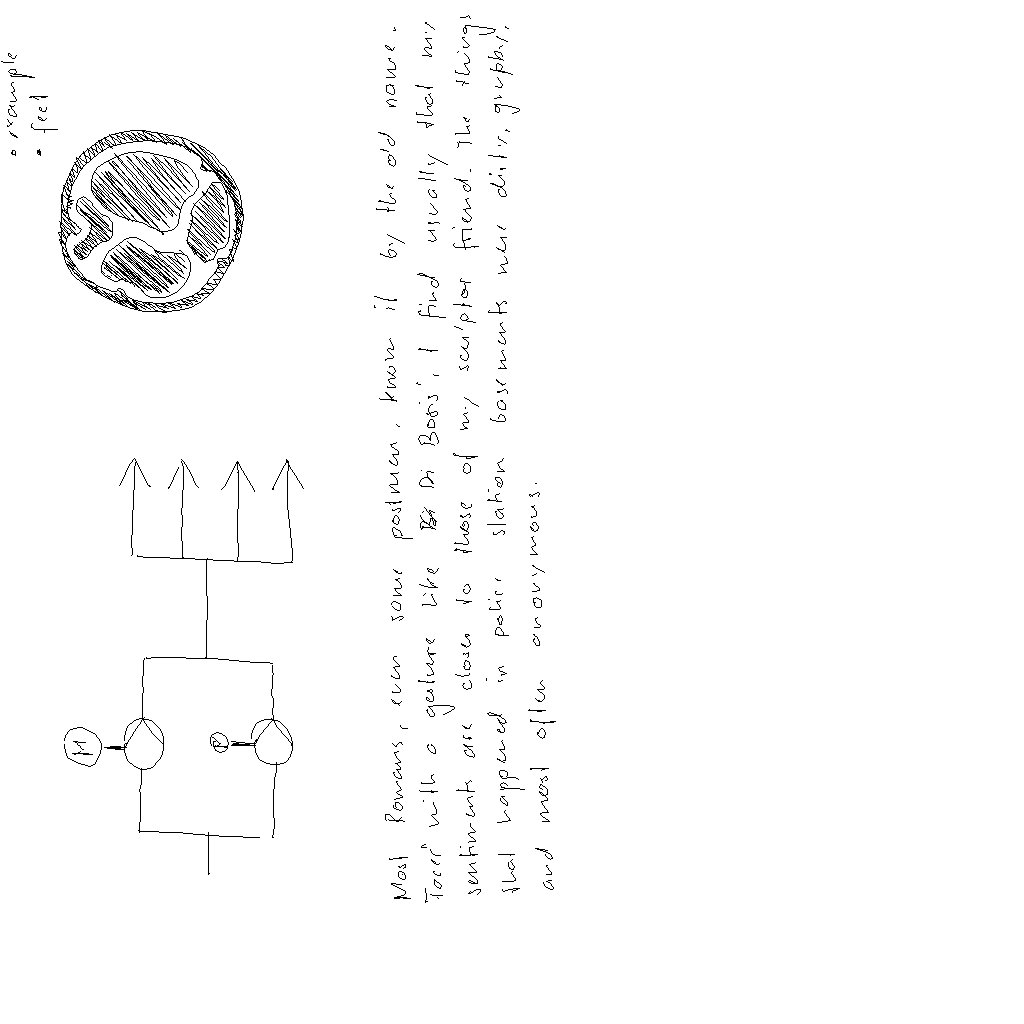 • example
• feet
M
P
Most Romans, even some postmen, know it by the old name.
Tacer' with a gesture like Di Boris', I find usually that my
sentiments are closer to those of my sculptor friend. The things
that happened in police station basements were dirty, grubby,
and most often anonymous.